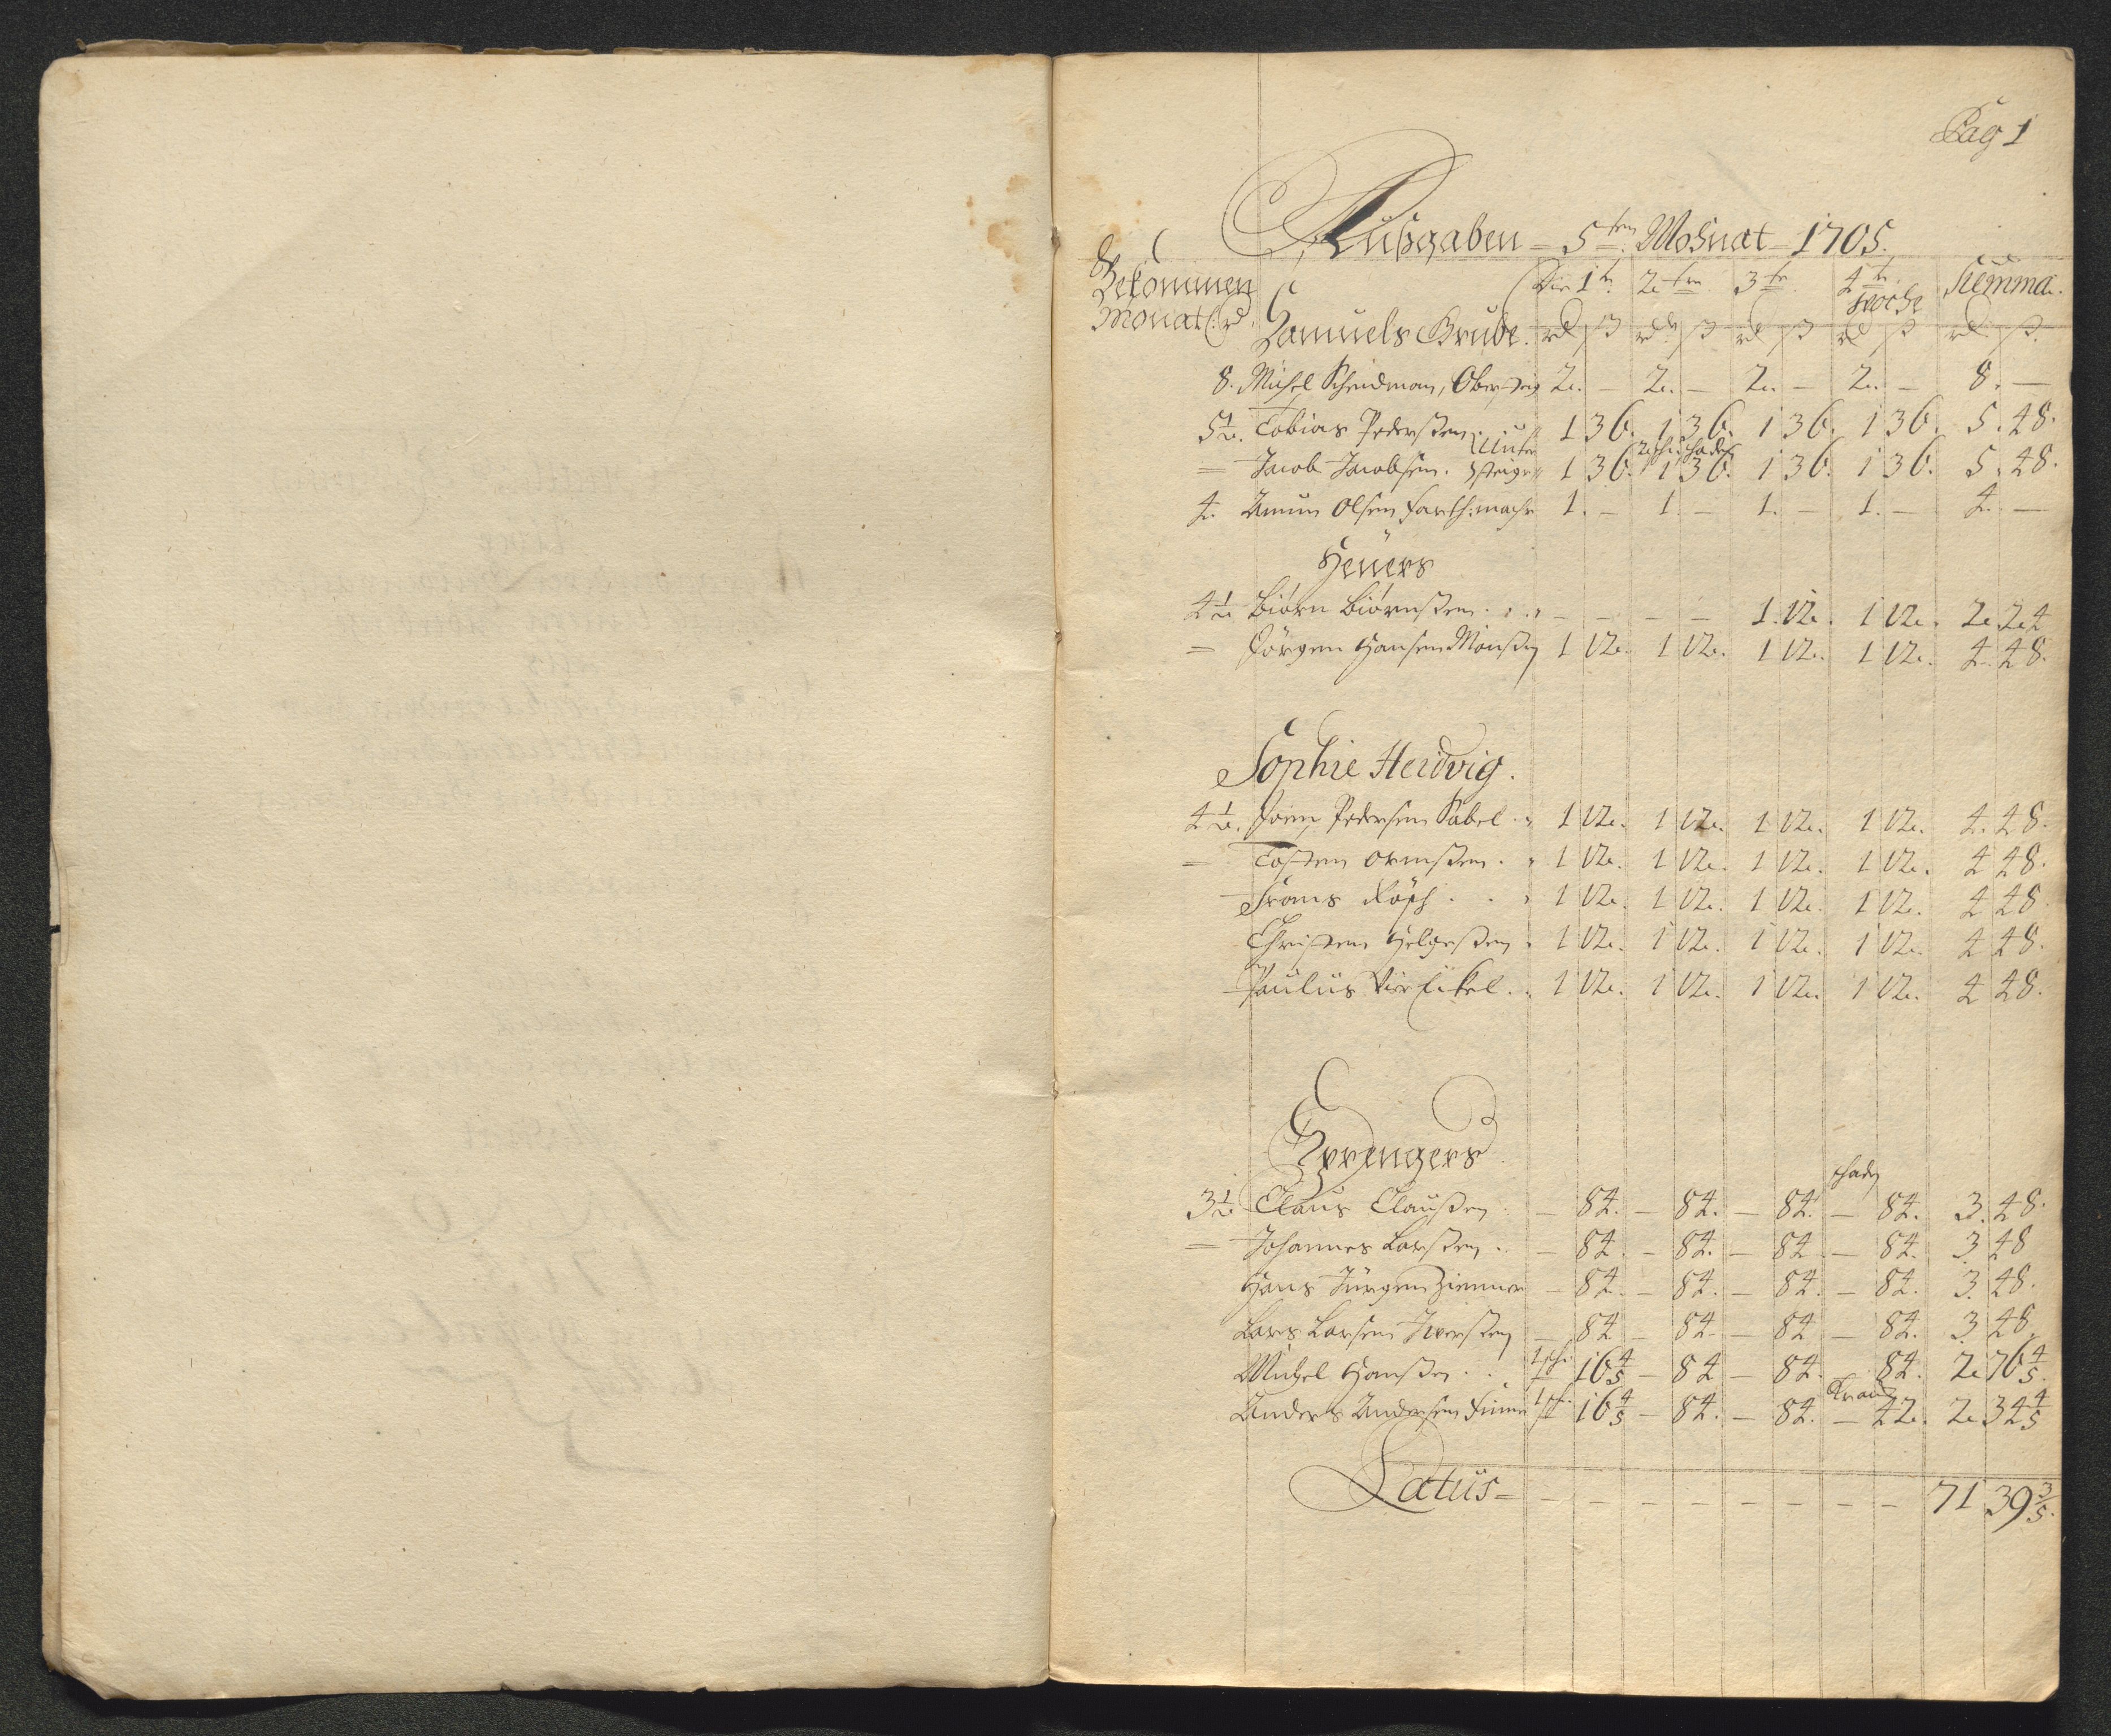 Pag 1
Ausgaben = 5ten Mohnat = 1705.
Bekommen
Monatl: rd.
Die 1te 2ten 3te 4te woche Summa.
Samuels Grube. rd ß rd ß rd ß rd ß rd ß
8. Michel Scheidman, Obersteig 2. – 2. – 2. – 2. – 8. –
5½. Tobias Pederßen. Unter 1 36. 1 36. 1 36. 1 36. 5. 48.
2 schi: schade
= Jacob Jacobsen. steiger 1 36. 1 36. 1 36. 1 36. 5. 48.
4. Amun Olsen 1. – 1. – 1. – 1. – 4. –
Heuers
4½ Biörn Biörnßen . . . – – – – 1. 12. 1 12. 2. 24
= Jörgen Hansen Monßen 1 12. 1 12. 1 12. 1 12. 4. 48.
Sophie Heidvig.
4½. Joen Pedersen Sabel . 1 12. 1 12. 1 12. 1 12. 4. 48.
= Tosten Ormßen . 1 12. 1 12. 1 12. 1 12. 4 48.
Frans Röph . . . 1 12. 1 12. 1 12. 1 12. 4 48.
Christen Helgeßen . 1 12. 1 12. 1 12. 1 12. 4 48.
Paulus . . 1 12. 1 12. 1 12. 1 12. 4 48.
Sprengers
schade
3½ Claus Claußen . – 84. – 84. – 84. – 84. 3. 48.
= Johannes Larßen . – 84. – 84. – 84 – 84. 3. 48
Hans Jürgen Zimmer – 84. – 84. – 84. – 84. 3. 48.
Lars Larsen Iverßen – 84 – 84. – 84 – 84. 3. 48.
Michel Hanßen . . 1 schi: 16 4/5 – 84 – 84. 84. 2. 76 4/5.
Kranck
Anders Andersen Finne 1 sch: 16 4/5 – 84. – 84. – 42. 2. 34 4/5
Latus = – – – – – – – – 71 39 3/5.